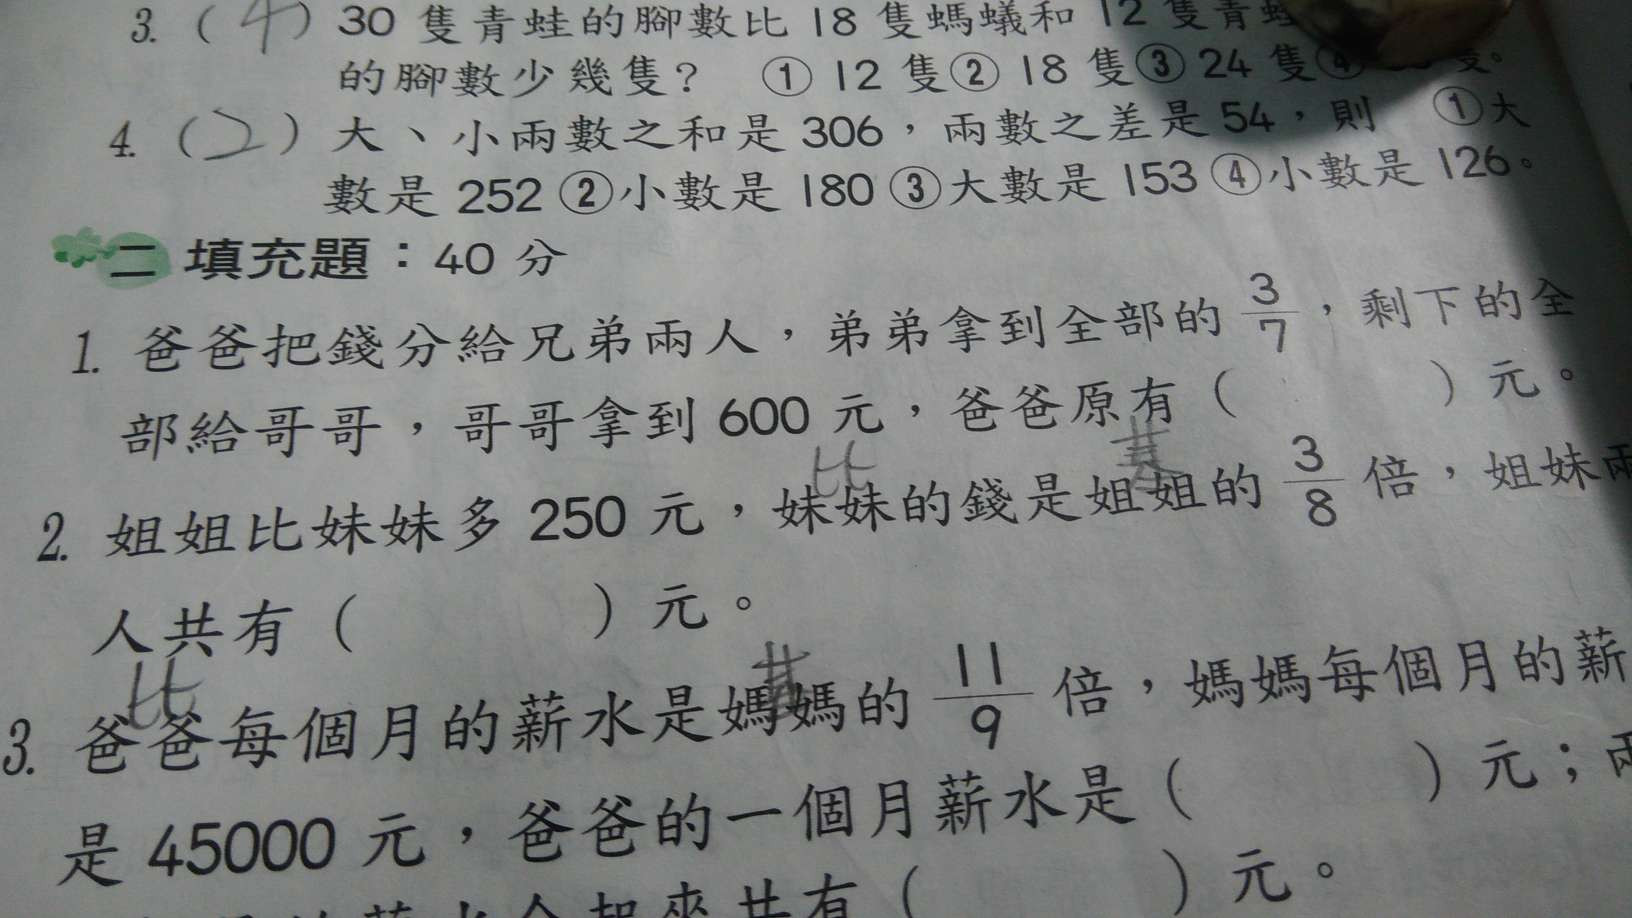 3. (4) 30 隻青蛙的腳數比 18 隻螞蟻和 12 隻青
的腳數少幾隻? ① 12 隻② 18 隻③ 24 隻④ 隻。
4. (2) 大、小兩數之和是 306,兩數之差是 54,則 ①大
數是 252 ②小數是 180 ③大數是 153 ④小數是 126。
二 填充題:40 分
1. 爸爸把錢分給兄弟兩人,弟弟拿到全部的 3/7,剩下的全
部給哥哥,哥哥拿到 600 元,爸爸原有( )元。
比 基
2. 姐姐比妹妹多 250 元,妹妹的錢是姐姐的 3/8 倍,姐妹兩
人共有( )元。
比 基
3. 爸爸每個月的薪水是媽媽的 11/9 倍,媽媽每個月的薪
是 45000 元,爸爸的一個月薪水是( )元;兩
共有( )元。